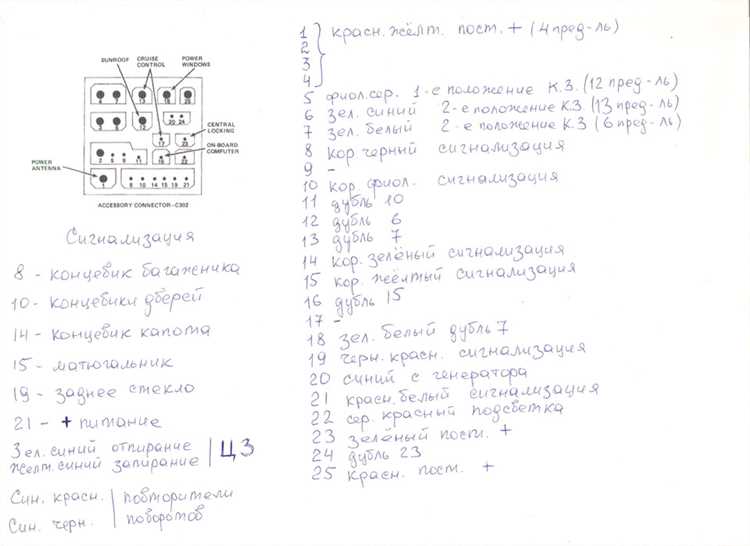 SUNROOF
CRUISE CONTROL
POWER WINDOWS
CENTRAL LOCKING
ON-BOARD COMPUTER
POWER ANTENNA
ACCESSORY CONNECTOR-C302
Сигнализация
8 - концевик багажника
10 - концевики дверей
14 - концевик капота
15 - матюгальник
19 - заднее стекло
21 - + питание
Зел. синий отпирание
Желт. синий запирание
ЦЗ
Син. красн.
Син. черн.
повторители
поворотов
1 красн. жёлт. пост. + (4 пред-ль)
2
3
4
5 фиол. сер. 1-е положение К.З. (12 пред-ль)
6 зел. синий 2-е положение К.З (13 пред-ль)
7 зел. белый 2-е положение К.З (6 пред-ль)
8 кор черный сигнализация
9 -
10 кор. фиол. сигнализация
11 дубль 10
12 дубль 6
13 дубль 7
14 кор. зелёный сигнализация
15 кор. жёлтый сигнализация
16 дубль 15
17 -
18 зел. белый дубль 7
19 черн. красн. сигнализация
20 синий с генератора
21 красн. белый сигнализация
22 сер. красный подсветка
23 зелёный пост. +
24 дубль 23
25 красн. пост. +